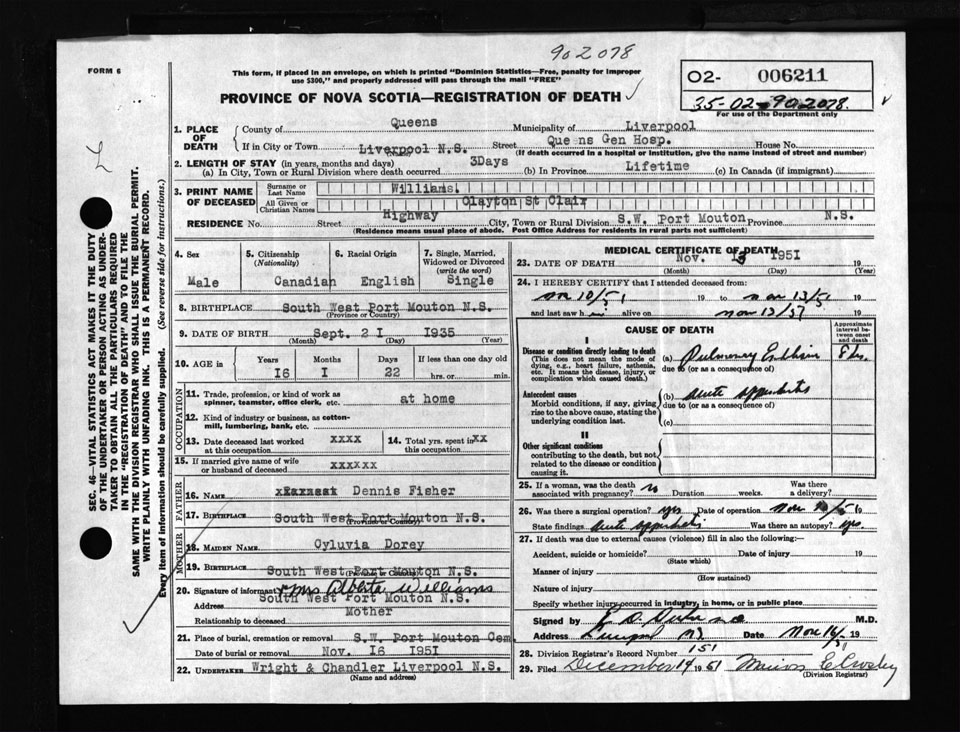 902078
FORM 6
This form, if placed in an envelope, on which is printed "Dominion Statistics—Free, penalty for improper
use $300," and properly addressed will pass through the mail "FREE"
PROVINCE OF NOVA SCOTIA—REGISTRATION OF DEATH
O2- 006211
35-02-902078.
For use of the Department only
1. PLACE OF DEATH
County of Queens Municipality of Liverpool
If in City or Town Liverpool N.S. Street Queens Gen Hosp. House No.
(If death occurred in a hospital or institution, give the name instead of street and number)
2. LENGTH OF STAY (in years, months and days)
(a) In City, Town or Rural Division where death occurred 3Days (b) In Province Lifetime (c) In Canada (if immigrant)
3. PRINT NAME OF DECEASED
Surname or Last Name Williams.
All Given or Christian Names Clayton St Clair
RESIDENCE No. Street Highway City, Town or Rural Division S.W. Port Mouton Province N.S.
(Residence means usual place of abode. Post Office Address for residents in rural parts not sufficient)
4. Sex Male
5. Citizenship (Nationality) Canadian
6. Racial Origin English
7. Single, Married, Widowed or Divorced (write the word) Single
8. BIRTHPLACE South West Port Mouton N.S.
(Province or Country)
9. DATE OF BIRTH Sept. 2I I935
(Month) (Day) (Year)
10. AGE in Years I6 Months I Days 22 If less than one day old hrs. or min.
OCCUPATION
11. Trade, profession, or kind of work as spinner, teamster, office clerk, etc. at home
12. Kind of industry or business, as cotton-mill, lumbering, bank, etc.
13. Date deceased last worked at this occupation xxxx
14. Total yrs. spent in this occupation xx
15. If married give name of wife or husband of deceased xxxxxx
FATHER
16. NAME Dennis Fisher
17. BIRTHPLACE South West Port Mouton N.S.
(Province or Country)
MOTHER
18. MAIDEN NAME Cyluvia Dorey
19. BIRTHPLACE South West Port Mouton N.S.
(Province or Country)
20. Signature of informant Mrs Alberta Williams
Address South West Port Mouton N.S.
Relationship to deceased Mother
21. Place of burial, cremation or removal S.W. Port Mouton Cem.
Date of burial or removal Nov. I6 I95I
22. UNDERTAKER Wright & Chandler Liverpool N.S.
(Name and address)
MEDICAL CERTIFICATE OF DEATH
23. DATE OF DEATH Nov. I3 I95I 19
(Month) (Day) (Year)
24. I HEREBY CERTIFY that I attended deceased from:
Nov 10/51 19 to Nov 13/51 19
and last saw h im alive on Nov 13/51 19
CAUSE OF DEATH
Approximate interval between onset and death
I
Disease or condition directly leading to death (This does not mean the mode of dying, e.g., heart failure, asthenia, etc. It means the disease, injury, or complication which caused death.)
(a) Pulmonary Embolism 8 hrs.
due to (or as a consequence of)
Antecedent causes
Morbid conditions, if any, giving rise to the above cause, stating the underlying condition last.
(b) Acute appendicitis
due to (or as a consequence of)
(c)
II
Other significant conditions contributing to the death, but not related to the disease or condition causing it.
25. If a woman, was the death associated with pregnancy? no Duration weeks. Was there a delivery?
26. Was there a surgical operation? yes Date of operation Nov 10/51 19
State findings Acute appendicitis Was there an autopsy? yes.
27. If death was due to external causes (violence) fill in also the following:—
Accident, suicide or homicide? Date of injury 19
(State which)
Manner of injury
(How sustained)
Nature of injury
Specify whether injury occurred in industry, in home, or in public place
Signed by M.D.
Address Liverpool N.S. Date Nov 16/51 19
28. Division Registrar's Record Number 151
29. Filed December 14 1951 E Crosby
(Division Registrar)
SEC. 46—VITAL STATISTICS ACT MAKES IT THE DUTY
OF THE UNDERTAKER OR PERSON ACTING AS UNDER-
TAKER TO OBTAIN ALL THE PARTICULARS REQUIRED
IN THE "REGISTRATION OF DEATH" AND TO FILE THE
SAME WITH THE DIVISION REGISTRAR WHO SHALL ISSUE THE BURIAL PERMIT.
WRITE PLAINLY WITH UNFADING INK. THIS IS A PERMANENT RECORD.
Every item of information should be carefully supplied. (See reverse side for instructions.)